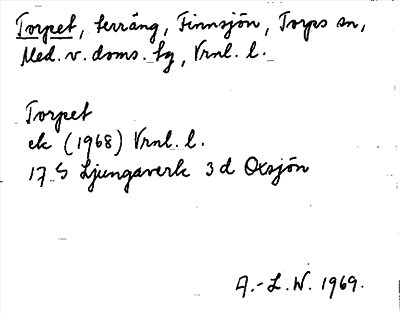 Torpet, terräng, Finnsjön, Torps sn,
Med. v. doms. tg, Vrnl. l.
Torpet
ek (1968) Vrnl. l.
17 G Ljungaverk 3 d Oxsjön
A.-L. W. 1969.